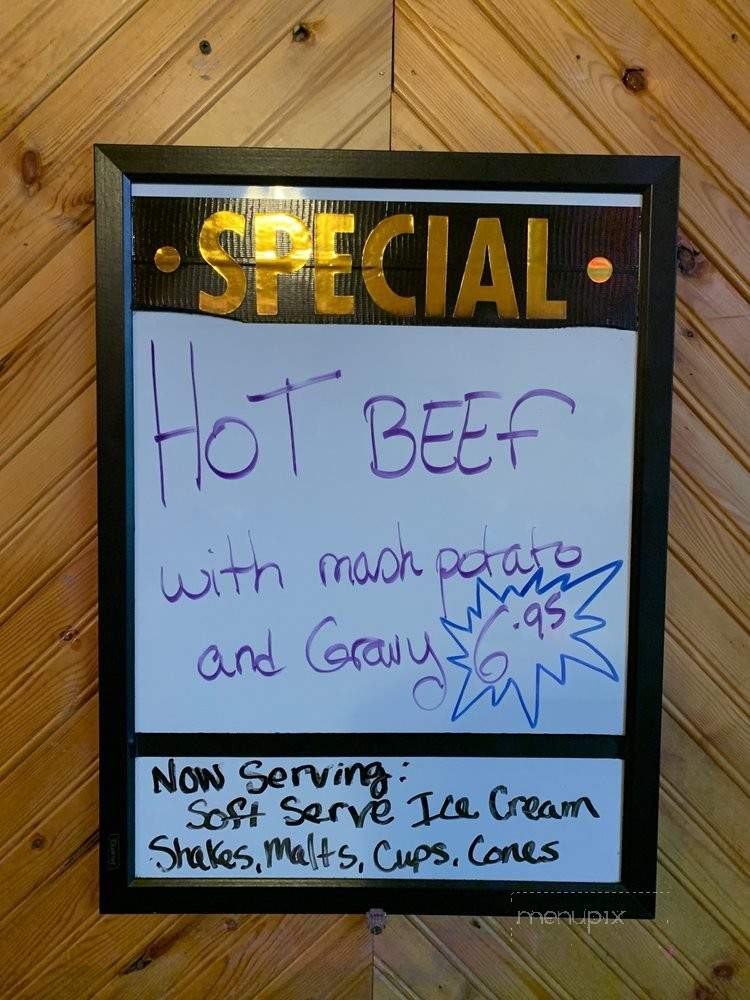 • SPECIAL •
HOT BEEF
with mash potato
and Gravy 6.95
Now Serving:
Soft Serve Ice Cream
Shakes, Malts, Cups, Cones
menupix